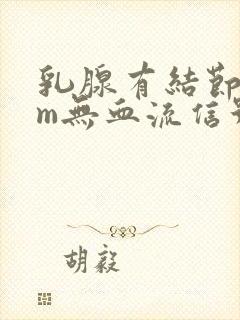 乳腺有結節
m無血流信
胡毅